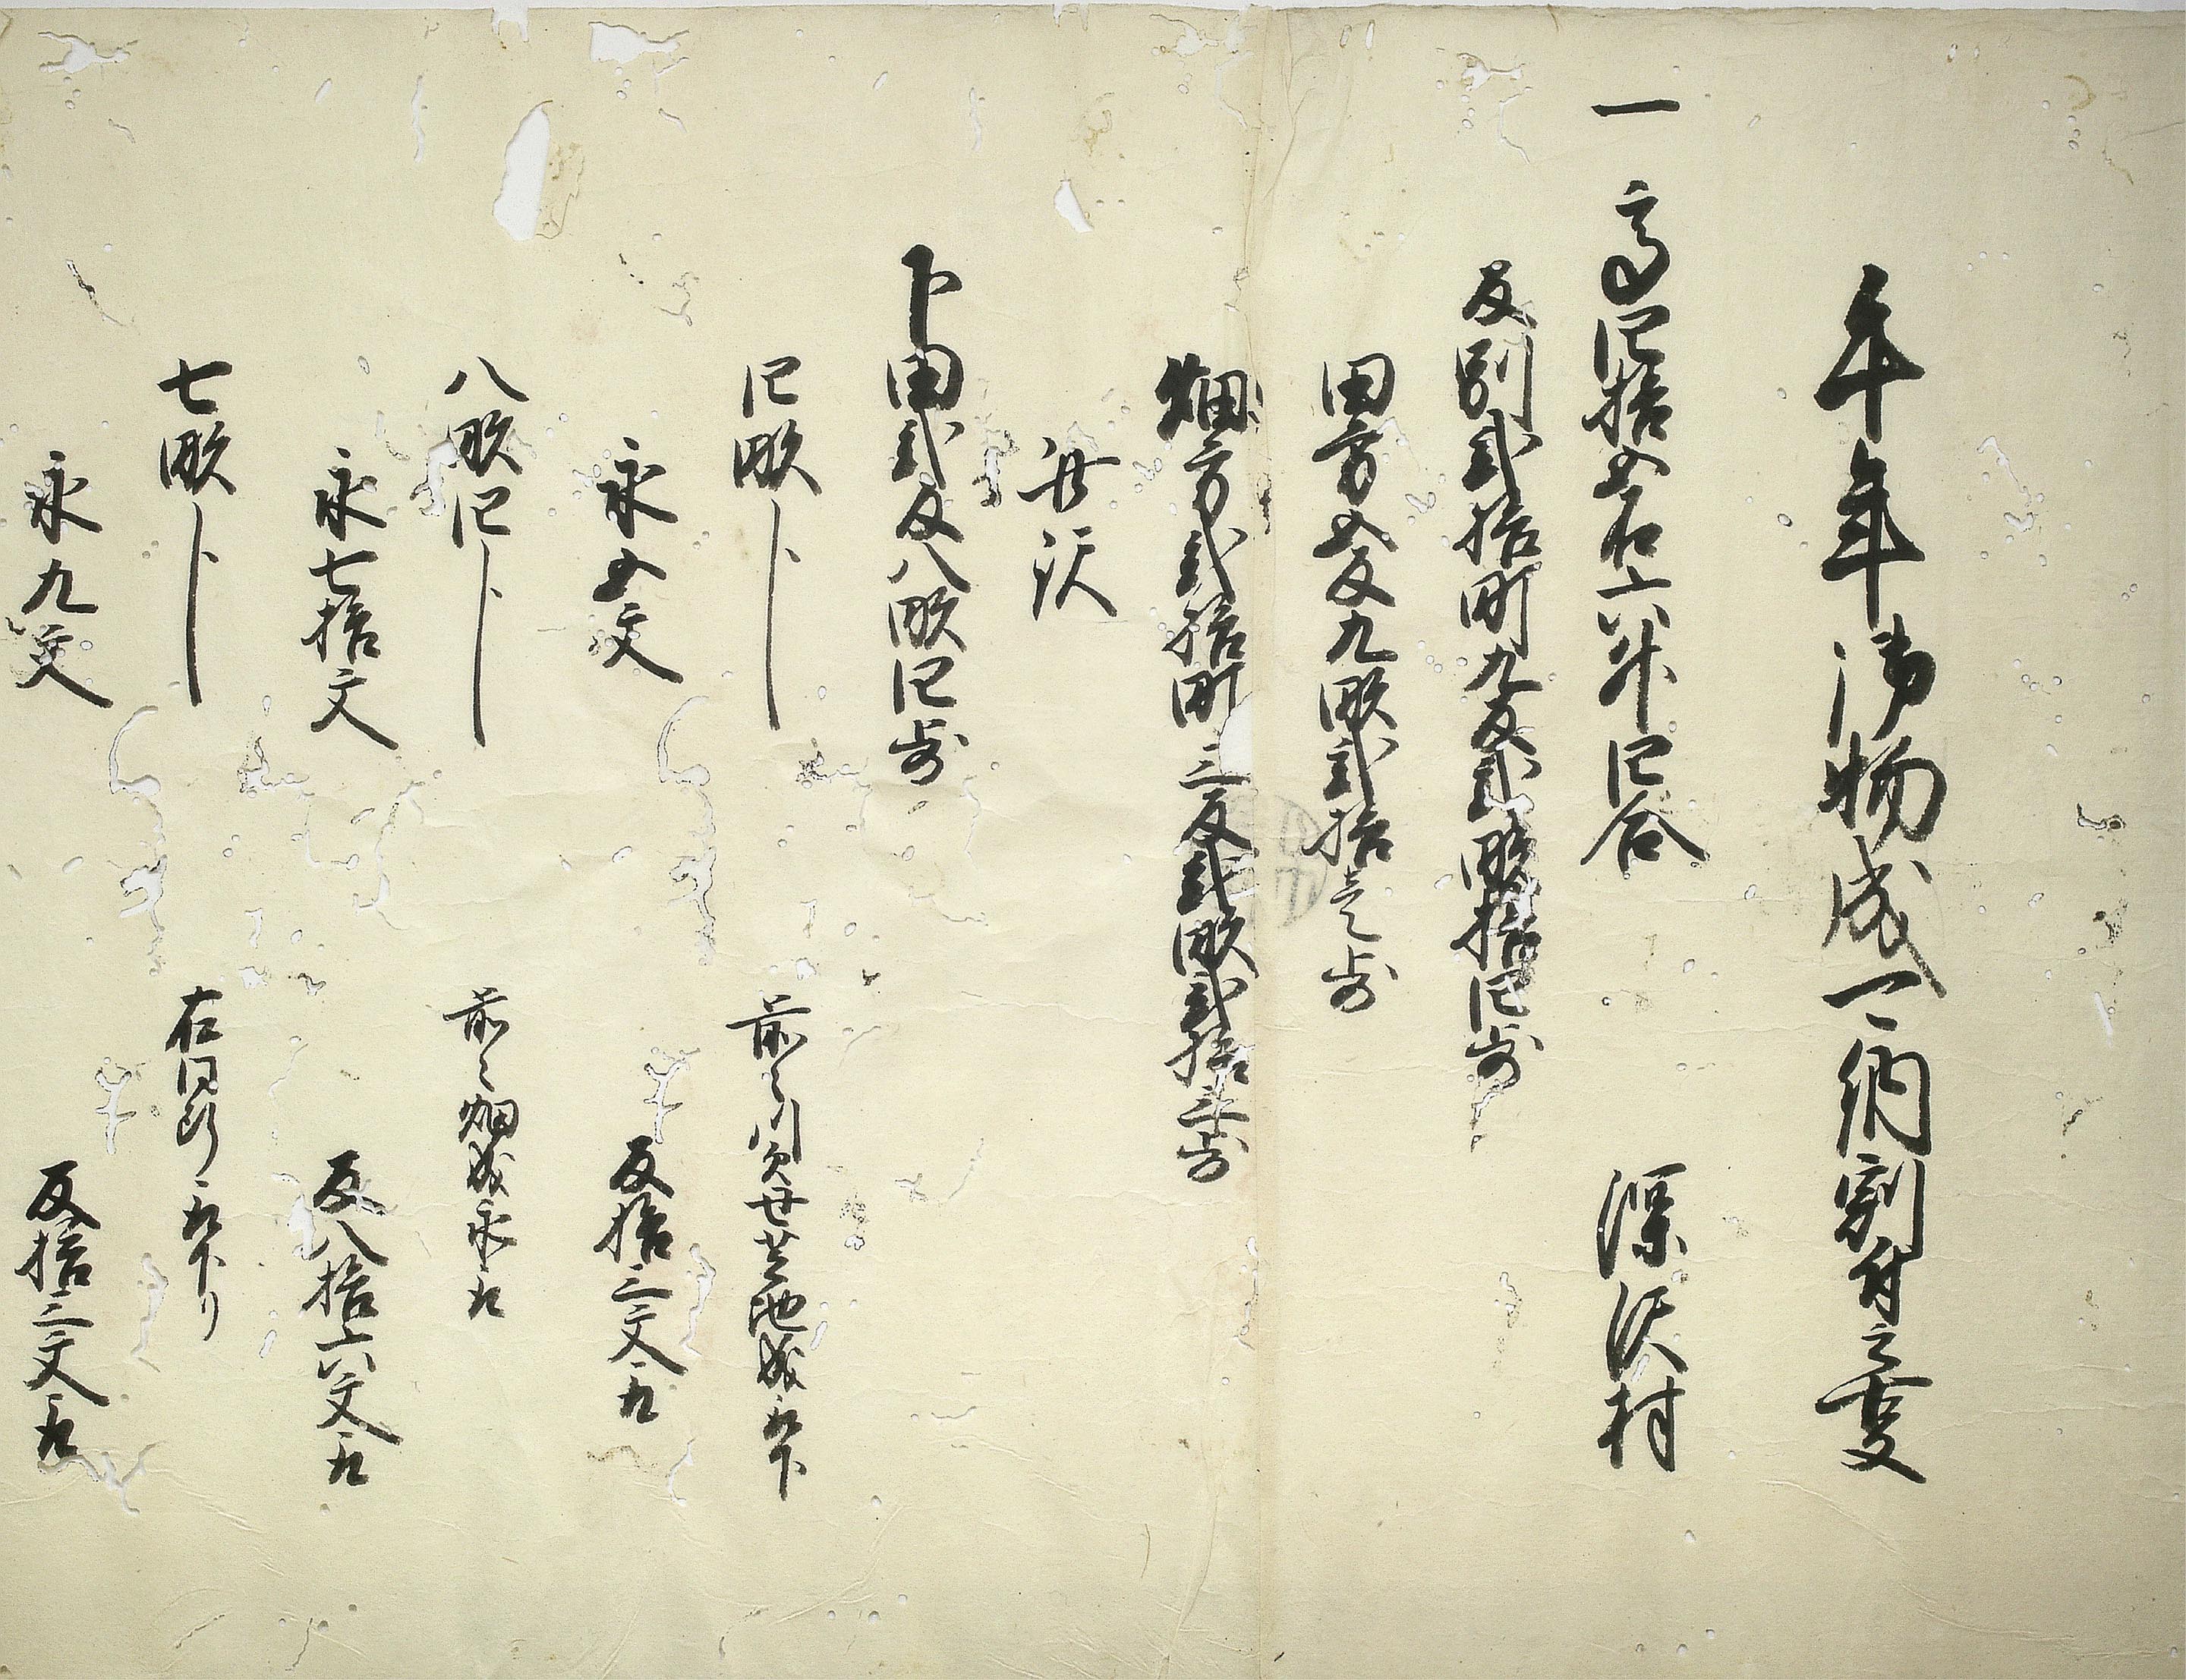 午年御物成可納割付之事
一高四拾五石六斗四合 深沢村
反別弐拾町九反弐畝拾四歩
田方五反九畝弐拾壱歩
畑方弐拾町三反弐畝弐拾三歩
此訳
下田弐反八畝四歩
内
四畝卜 前々川欠 芝地成
永五文 反拾三文
八畝四卜 前々畑成永引
永七拾文 反八拾六文取
七畝卜 右同断
永九文 反拾三文取